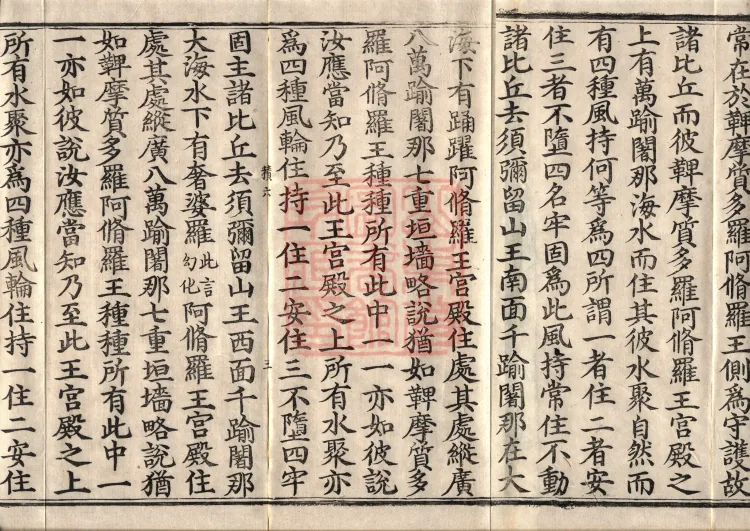 常在於鞞摩質多羅阿脩羅王側爲守護故
諸比丘而彼鞞摩質多羅阿脩羅王宮殿之
上有萬踰闍那海水而住其彼水聚自然而
有四種風持何等爲四所謂一者住二者安
住三者不墮四名牢固爲此風持常住不動
諸比丘去須彌留山王南面千踰闍那在大
海下有踊躍阿脩羅王宮殿住處其處縱廣
八萬踰闍那七重垣墻略說猶如鞞摩質多
羅阿脩羅王種種所有此中一一亦如彼說
汝應當知乃至此王宮殿之上所有水聚亦
爲四種風輪住持一住二安住三不墮四牢
積六 三
固主諸比丘去須彌留山王西面千踰闍那
大海水下有奢婆羅此言幻化阿脩羅王宮殿住
處其處縱廣八萬踰闍那七重垣墻略說猶
如鞞摩質多羅阿脩羅王種種所有此中一
一亦如彼說汝應當知乃至此王宮殿之上
所有水聚亦爲四種風輪住持一住二安住